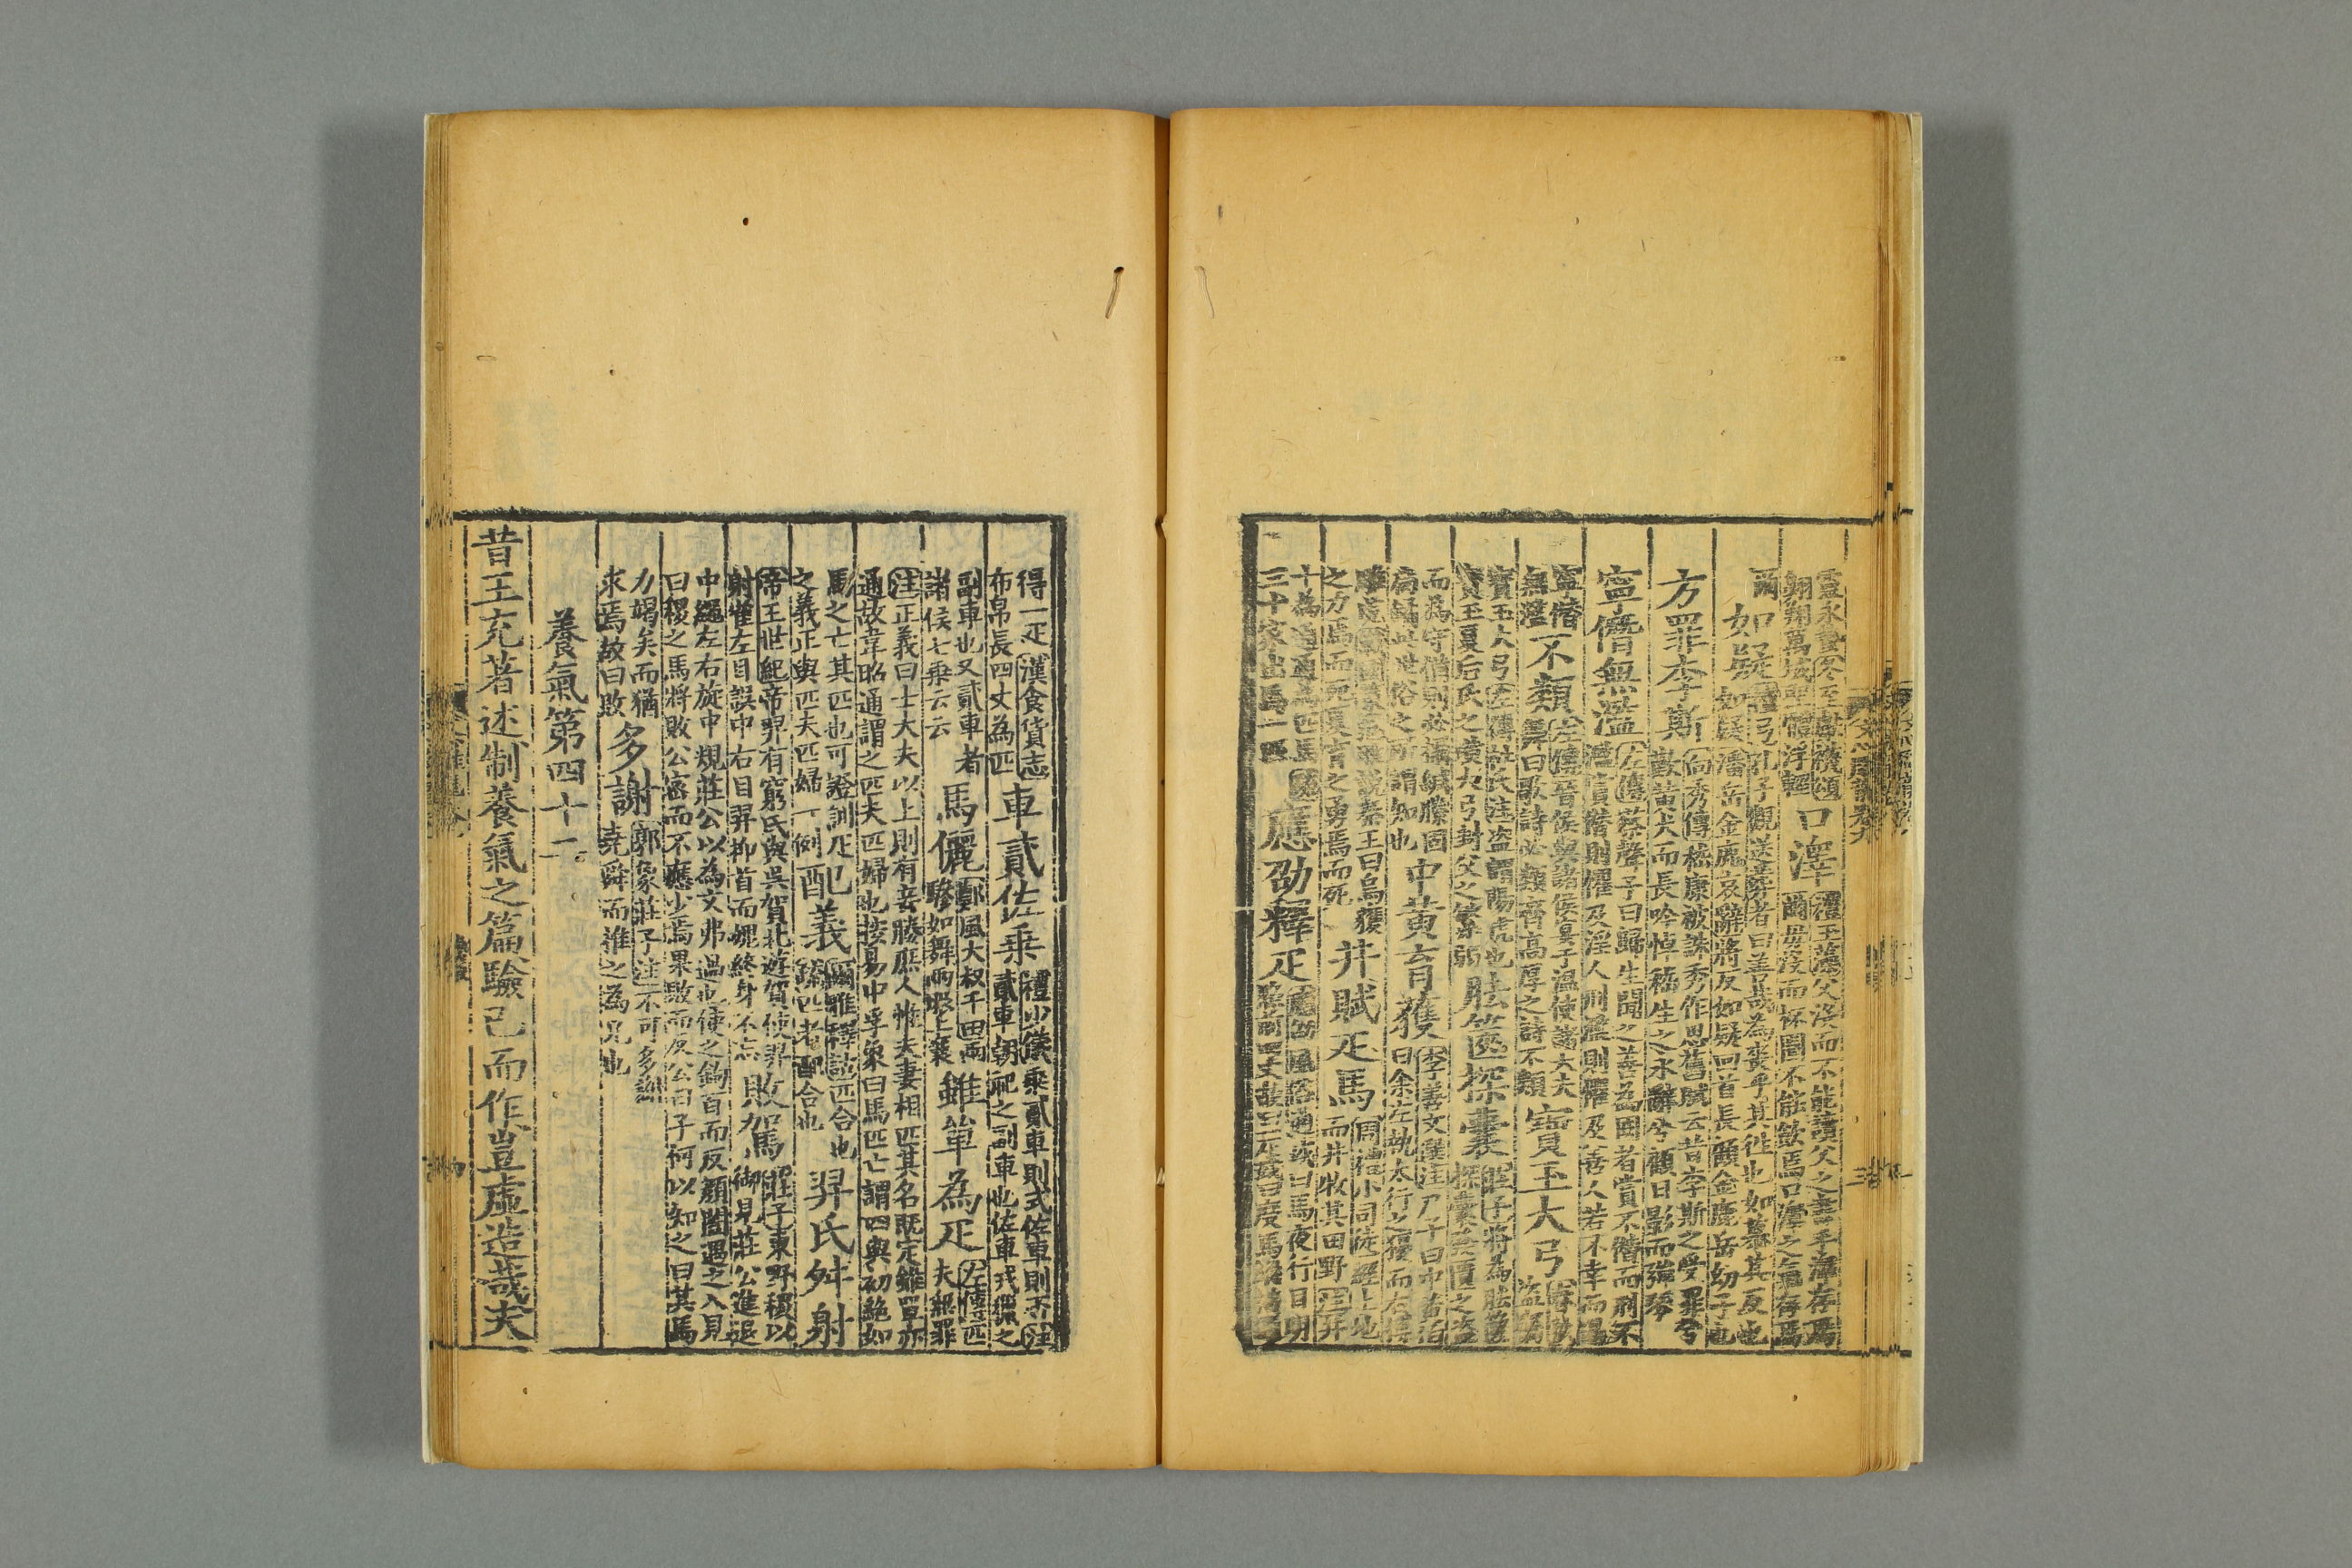 靈永蟄冬至韤襪頌
翺翔萬域聖體浮輕
口澤
禮玉藻父沒而不能讀父之書手澤存焉
爾母沒而杯圈不能飮焉口澤之氣存焉
爾
如疑
禮檀弓孔子觀送葬者曰善哉為喪乎其往也如慕其反也
如疑潘岳金鹿哀辭將反如疑回首長顧金鹿岳幼子也
方罪李斯
向秀傳嵇康被誅秀作思舊賦云昔李斯之受罪兮
歎黃犬而長吟悼嵇生之永辭兮顧日影而彈琴
寧僭無濫
左傳蔡聲子曰歸生聞之善為國者賞不僭而刑不
濫賞僭則懼及淫人刑濫則懼及善人若不幸而過
寧僭
無濫
不類
左傳晉侯與諸侯宴于溫使諸大夫
舞曰歌詩必類齊高厚之詩不類
寶玉大弓
春秋
盜竊
寶玉大弓左傳杜氏注盜謂陽虎也
寶玉夏后氏之璜大弓封父之繁弱
胠篋探囊
莊子將為胠篋
探囊發匱之盜
而為守備則必攝緘縢固
扃鐍此世俗之所謂知也
中黃育獲
李善文選注尸子曰中黃伯
曰余左執太行之獶而右搏
雕虎
之力焉而死夏育之勇焉而死
井賦疋馬
周禮小司徒經土地
而井牧其田野
十為通通為匹馬
三十家出馬一匹
應劭釋疋
應劭風俗通或曰馬夜行目明
照前四丈故曰一疋或曰度馬縱橫
得一疋漢食貨志
布帛長四丈為匹
車貳佐乗
禮少儀乘貳車則式佐車則否注
貳車朝祀之副車也佐車戎獵之
副車也又貳車者
諸侯七乘云云
馬儷
鄭風大叔于田兩
驂如舞兩服上襄
雖單為疋
左傳匹
夫無罪
注正義曰士大夫以上則有妾媵庶人惟夫妻相匹其名旣定雖單亦
通故韋昭通謂之匹夫匹婦也按易中孚象曰馬匹亡謂四與初絶如
馬之亡其匹也可證訓疋
之義正與匹夫匹婦一例
配義
爾雅釋詁匹合也
疏匹者配合也
羿氏舛射
帝王世紀帝羿有窮氏與吳賀北遊賀使羿
射雀左目誤中右目羿抑首而媿終身不忘
敗駕
莊子東野稷以
御見莊公進退
中繩左右旋中規莊公以為文弗過也使之鉤百而反顏闔遇之入見
曰稷之馬將敗公密而不應少焉果敗而反公曰子何以知之曰其馬
力竭矣而猶
求焉故曰敗
多謝
郭象莊子注不可多謝
堯舜而推之為兄也
養氣第四十二
昔王充著述制養氣之篇驗己而作豈虛造哉夫